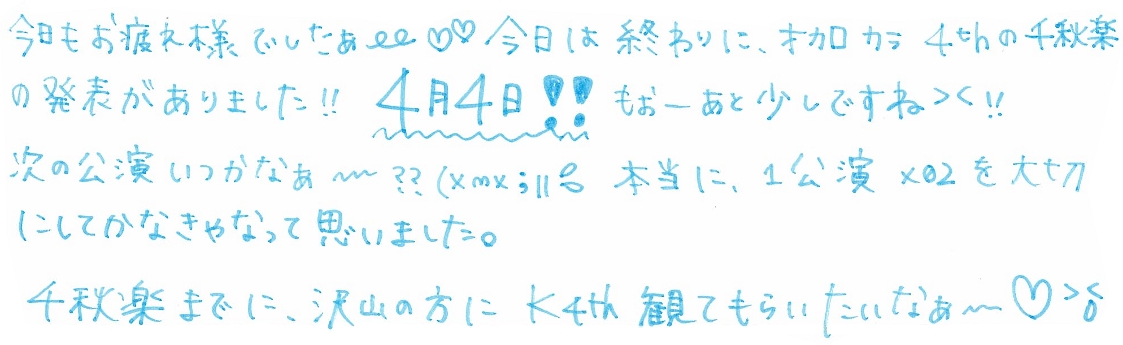 今日もお疲れ様でしたぁee♡♡今日は終わりに、オカロカラ4thの千秋楽
の発表がありました!! 4月4日!! もぉーあと少しですね><!!
次の公演いつかなぁ〜??(xmx;||6 本当に、1公演x02を大切
にしてかなきゃなって思いました。
千秋楽までに、沢山の方にK4th観てもらいたいなぁ〜♡><